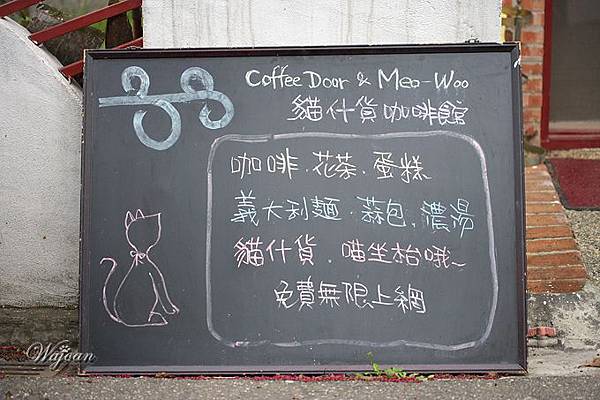 Coffee Door & Meo-Woo
貓什貨咖啡館
咖啡.花茶.蛋糕
義大利麵.蒜包.濃湯
貓什貨.喵坐枱哦~
免費無限上網
Wajoan